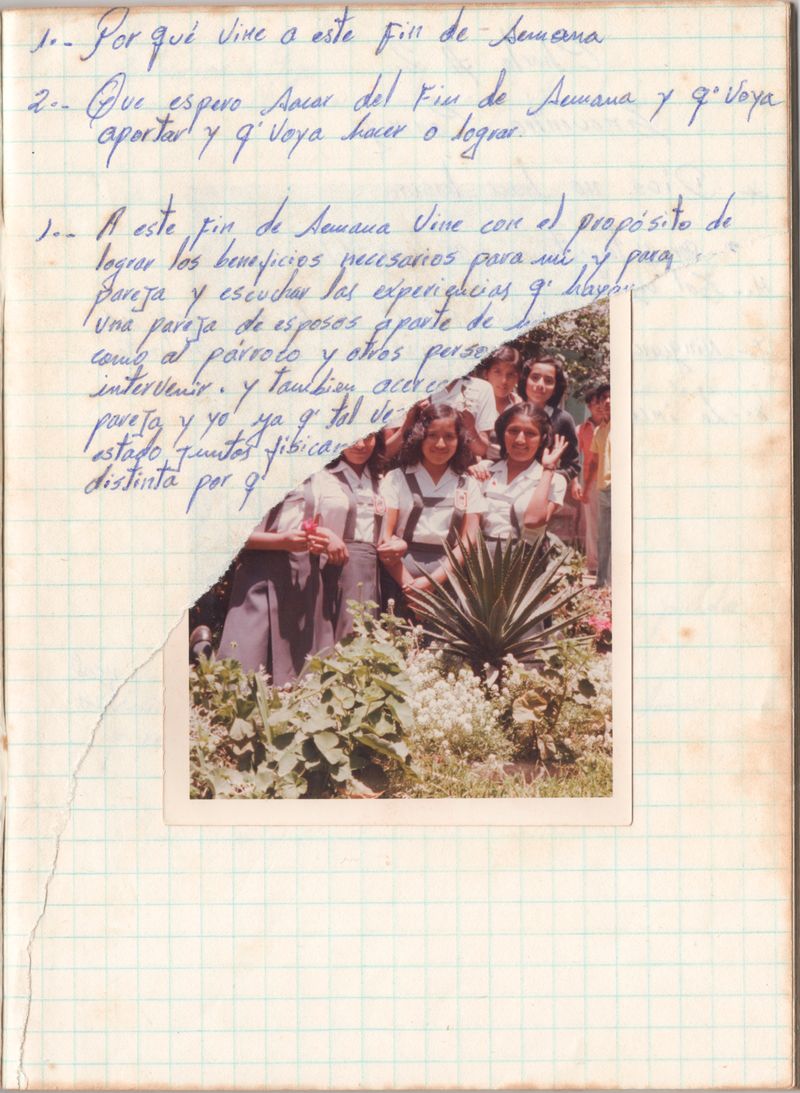 1.- Por qué vine a este Fin de Semana
2.- Que espero Sacar del Fin de Semana y q' voy a
aportar y q' voy a hacer o lograr.
1.- A este Fin de Semana Vine con el propósito de
lograr los beneficios necesarios para mi y para
pareja y escuchar las experiencias q' hayan
una pareja de esposos aparte de
como al párroco y otros
intervenir. y tambien
pareja y yo ya q' tal
estado juntos
distinta por q'